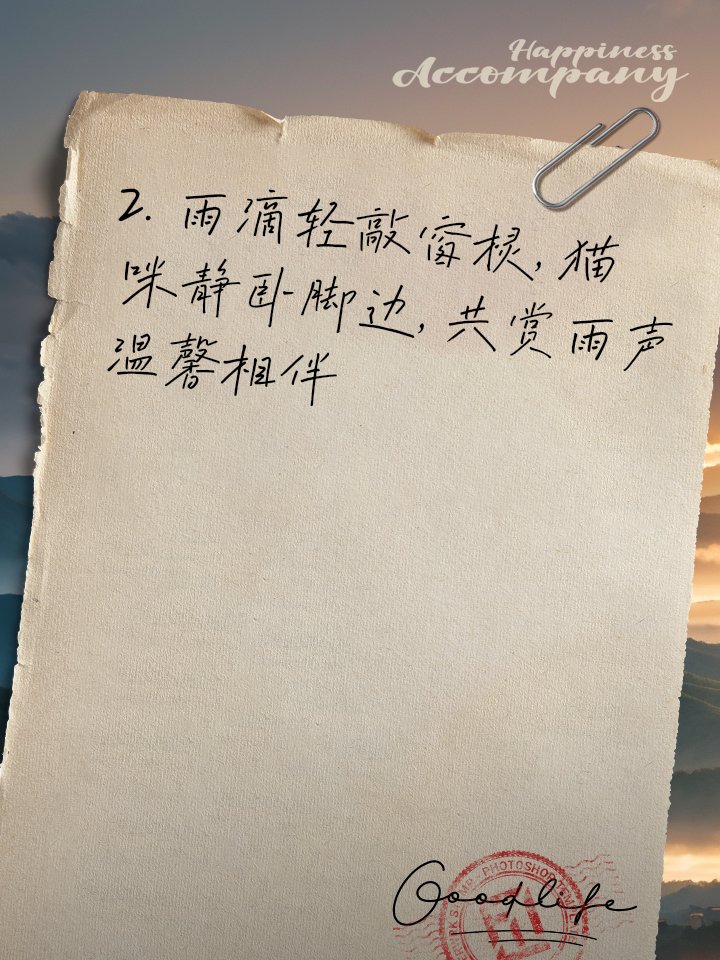 Happiness
Accompany
2. 雨滴轻敲窗棂,猫
咪静卧脚边,共赏雨声
温馨相伴
Goodlife